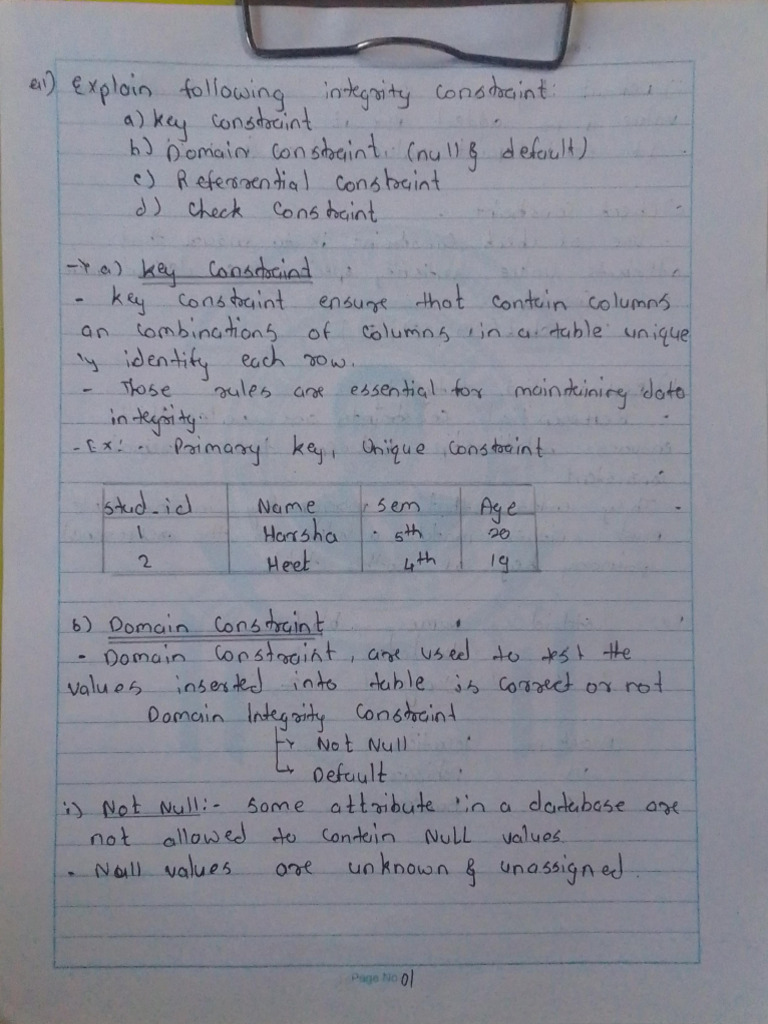 Q.1) Explain following integrity constraint:
a) Key constraint
b) Domain constraint. (null & default)
c) Referrential constraint
d) Check constraint
→ a) Key Constraint
- Key constraint ensure that contain columns
an combinations of columns in a table unique
ly identify each row.
- These rules are essential for maintaining data
integrity.
- Ex: - Primary key, Unique constraint
stud_id Name Sem Age
1 Harsha 5th 20
2 Heet 4th 19
b) Domain Constraint
- Domain Constraint, are used to test the
values inserted into table is correct or not
Domain Integrity Constraint
→ Not Null
→ Default
i) Not Null:- Some attribute in a database are
not allowed to contain NULL values.
- Null values are unknown & unassigned.
Page No 01